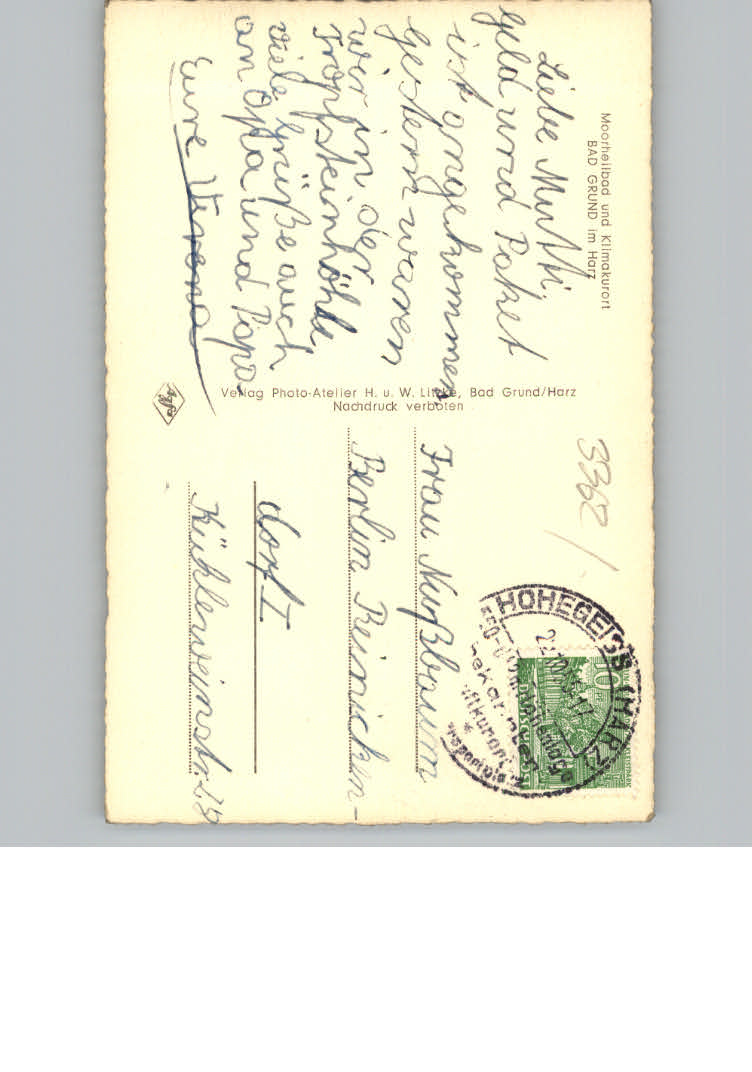 Moorheilbad und Klimakurort
BAD GRUND im Harz
Liebe Mutti,
geld und Paket
ist angekommen
gestern waren
wir in der
Tropfsteinhöhle
viele Grüße auch
an Opa und Papa
Eure Verena
Verlag Photo-Atelier H. u. W. Litzke, Bad Grund/Harz
Nachdruck verboten
Agfa
3362 /
Frau Nußbaum
Berlin Reinicken-
dorf I
Kühleweinstr.
HOHEGEISS (HARZ)
DEUTSCHE POST